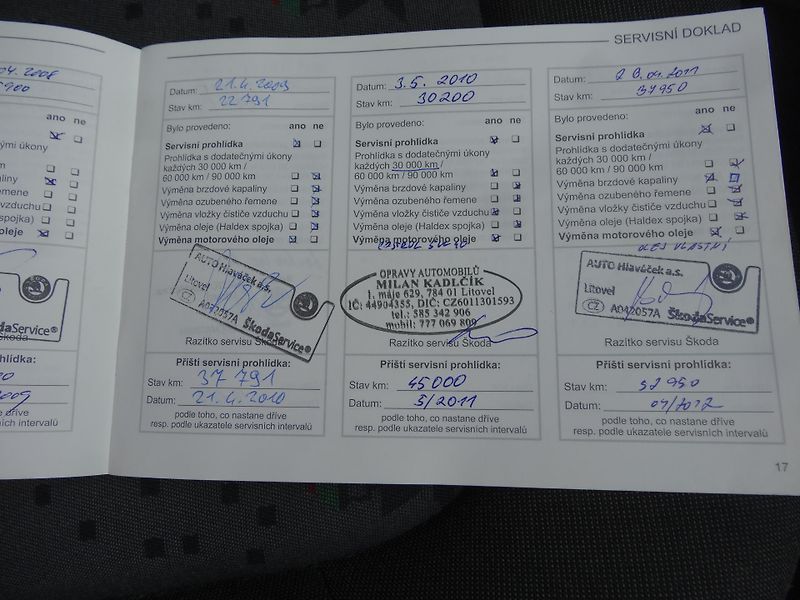 SERVISNÍ DOKLAD
04.2008
ano ne
nými úkony
aliny
emene
zduchu
spojka)
oleje
koda
ŠkodaService®
lídka:
2009
dříve
intervalů
Datum: 21.4.2009
Stav km: 22 791
Bylo provedeno: ano ne
Servisní prohlídka
Prohlídka s dodatečnými úkony
každých 30 000 km /
60 000 km / 90 000 km
Výměna brzdové kapaliny
Výměna ozubeného řemene
Výměna vložky čističe vzduchu
Výměna oleje (Haldex spojka)
Výměna motorového oleje
AUTO Hlaváček a.s.
Litovel
CZ A042057A ŠkodaService®
Razítko servisu Škoda
Příští servisní prohlídka:
Stav km: 37 791
Datum: 21.4.2010
podle toho, co nastane dříve
resp. podle ukazatele servisních intervalů
Datum: 3.5. 2010
Stav km: 30200
Bylo provedeno: ano ne
Servisní prohlídka
Prohlídka s dodatečnými úkony
každých 30 000 km /
60 000 km / 90 000 km
Výměna brzdové kapaliny
Výměna ozubeného řemene
Výměna vložky čističe vzduchu
Výměna oleje (Haldex spojka)
Výměna motorového oleje
OPRAVY AUTOMOBILŮ
MILAN KADLČÍK
1. máje 629, 784 01 Litovel
IČ: 44904355, DIČ: CZ6011301593
tel.: 585 342 906
mobil: 777 069 809
Razítko servisu Škoda
Příští servisní prohlídka:
Stav km: 45000
Datum: 5/2011
podle toho, co nastane dříve
resp. podle ukazatele servisních intervalů
Datum: 28.04.2011
Stav km: 37950
Bylo provedeno: ano ne
Servisní prohlídka
Prohlídka s dodatečnými úkony
každých 30 000 km /
60 000 km / 90 000 km
Výměna brzdové kapaliny
Výměna ozubeného řemene
Výměna vložky čističe vzduchu
Výměna oleje (Haldex spojka)
Výměna motorového oleje
OLEJ VLASTNÍ
AUTO Hlaváček a.s.
Litovel
CZ A042057A ŠkodaService®
Razítko servisu Škoda
Příští servisní prohlídka:
Stav km: 52950
Datum: 04/2012
podle toho, co nastane dříve
resp. podle ukazatele servisních intervalů
17